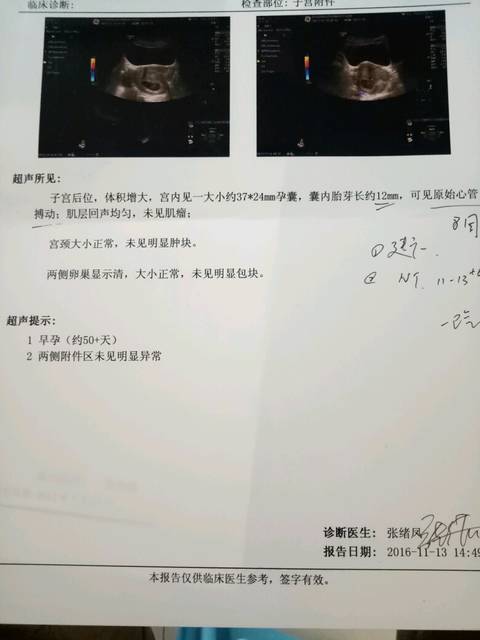 临床诊断:
检查部位: 子宫附件
超声所见:
子宫后位, 体积增大, 宫内见一大小约37*24mm孕囊, 囊内胎芽长约12mm, 可见原始心管
搏动; 肌层回声均匀, 未见肌瘤;
8周
宫颈大小正常, 未见明显肿块。
① 建
② NT. 11-13
两侧卵巢显示清, 大小正常, 未见明显包块。
超声提示:
1 早孕 (约50+天)
2 两侧附件区未见明显异常
诊断医生: 张绪凤
报告日期: 2016-11-13 14:49
本报告仅供临床医生参考, 签字有效。